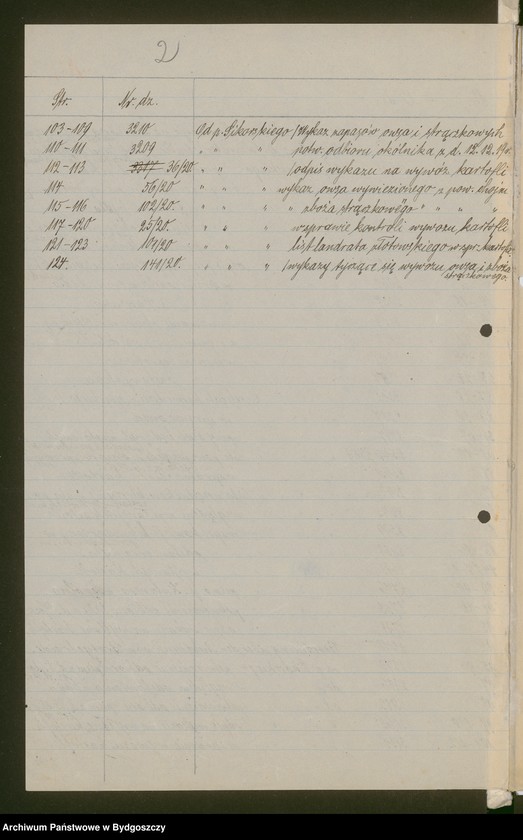 2
Str. Nr. dz.
103-109 3210 Od p. Sikorskiego /Wykaz zapasów owsa i strączkowych
110-111 3209 " " " potw. odbioru okólnika z d. 12.12.19r.
112-113 36/20. " " " /odpis wykazu na wywóz kartofli
114. 56/20 " " " wykaz owsa wywiezionego z pow.
115-116 102/20. " " " " zboża strączkowego " " "
117-120 25/20. " " " w sprawie kontroli wywozu kartofli
121-123 101/20 " " " list landrata w spr. kartofli
124. 141/20. " " " /wykazy tyczące się wywozu owsa i zboża
strączkowego
Archiwum Państwowe w Bydgoszczy